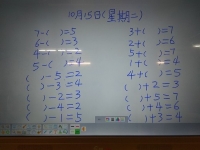 10月15日(星期二)
7-( )=5
6-( )=3
5-( )=4
( )-5=2
( )-3=4
( )-2=3
( )-4=2
( )-1=5
3+( )=7
2+( )=6
5+( )=7
1+( )=4
4+( )=5
( )+2=3
( )+5=7
( )+4=6
( )+3=4